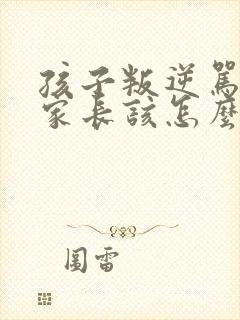 孩子叛逆罵
家長該怎麼
圖雷